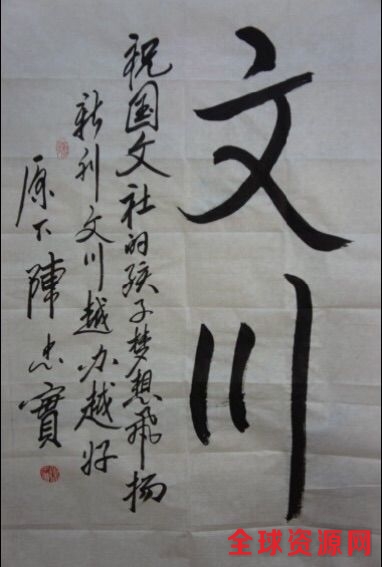 文川
祝国文社的孩子梦想飞扬
新刊文川越办越好
原下陳忠實
全球资源网